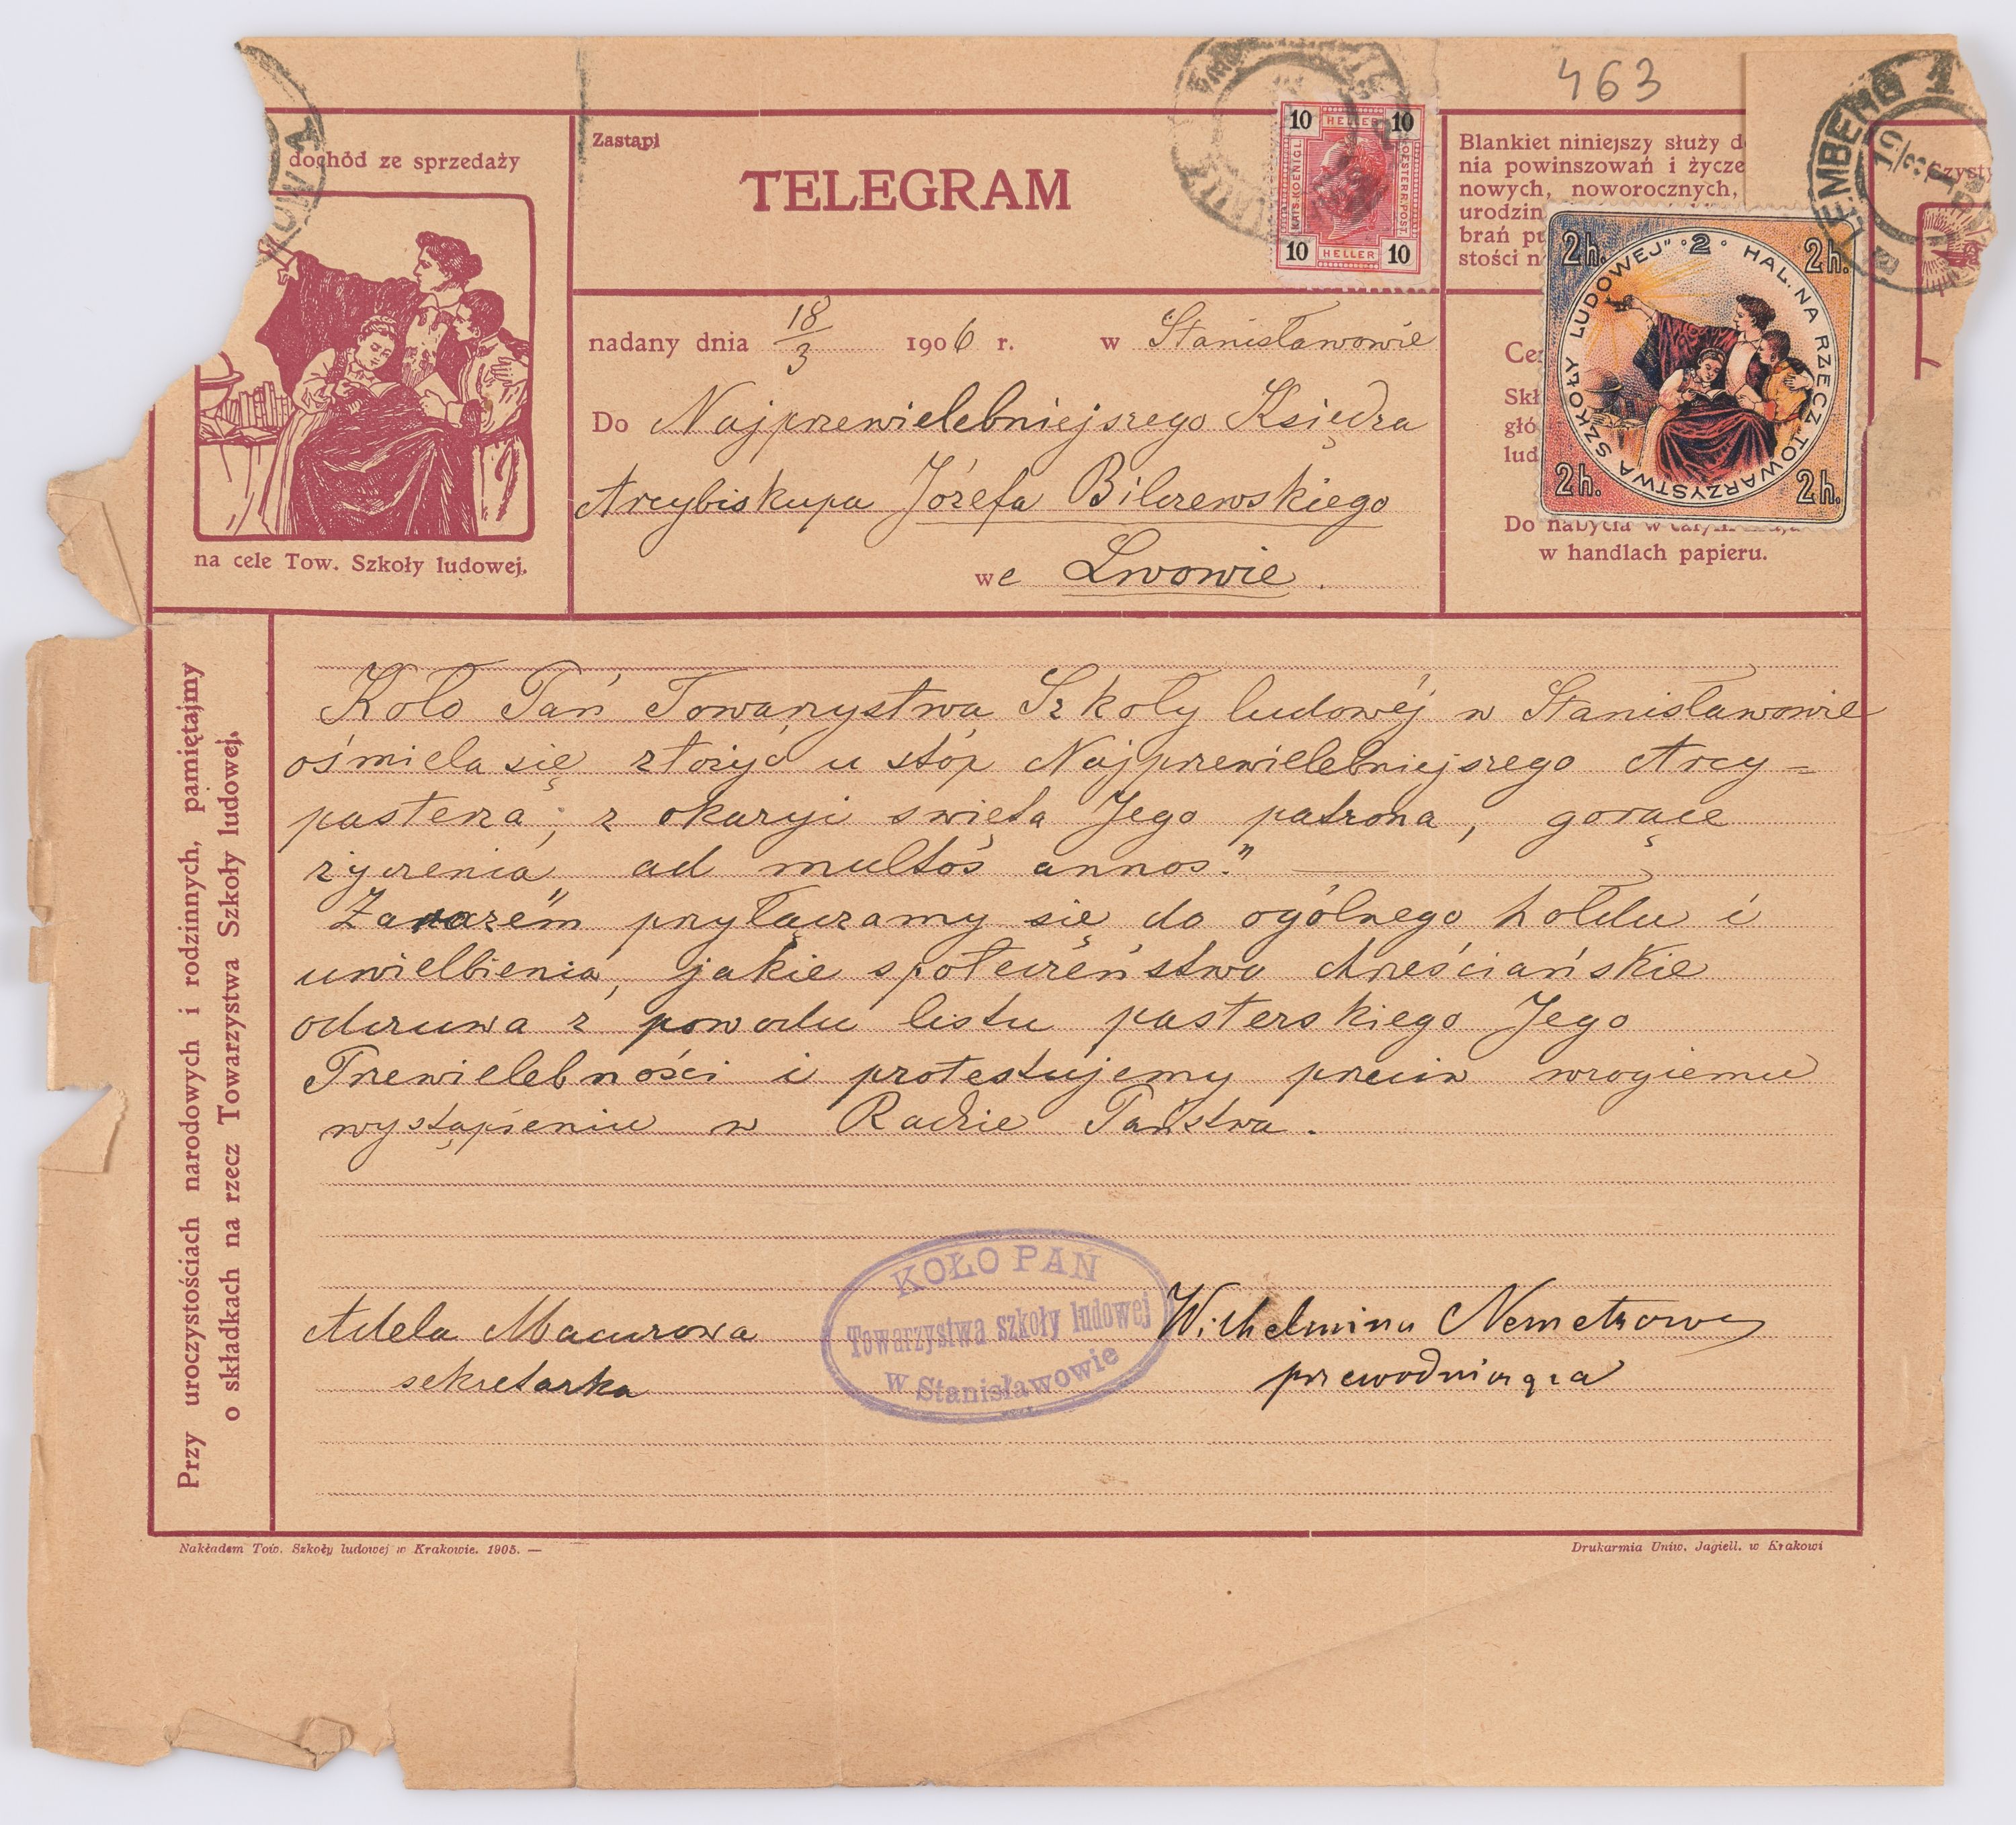 463
dochód ze sprzedaży
na cele Tow. Szkoły ludowej.
Zastąpi
TELEGRAM
10 HELLER 10
KAIS. KOENIGL.
OESTERR. POST.
10 HELLER 10
Blankiet niniejszy służy d
nia powinszowań i życze
nowych, noworocznych,
urodzin
brań pu
stości n
LEMBERG 1
Czysty
2h. 2h.
SZKOŁY LUDOWEJ" 2 HAL. NA RZECZ TOWARZYSTWA
2h. 2h.
nadany dnia 18/3 1906 r. w Stanisławowie
Do Najprzewielebniejszego Księdza
Arcybiskupa Józefa Bilczewskiego
we Lwowie.
Cen
Skł
głó
lud
Do nabycia w
w handlach papieru.
Koło Pań Towarzystwa Szkoły ludowéj w Stanisławowie
ośmiela się złożyć u stóp Najprzewielebniejszego Arcy=
pasterza, z okazyi święta Jego patrona, gorące
życzenia „ad multos annos." —
Zarazem przyłączamy się do ogólnego hołdu i
uwielbienia, jakie społeczeństwo chrześciańskie
odczuwa z powodu listu pasterskiego Jego
Przewielebności i protestujemy przeciw wrogiemu
wystąpieniu w Radzie Państwa.
Adela Mazurowa
sekretarka
KOŁO PAŃ
Towarzystwa szkoły ludowej
w Stanisławowie
Wilhelmina Nemetzowa
przewodnicząca
Przy uroczystościach narodowych i rodzinnych, pamiętajmy
o składkach na rzecz Towarzystwa Szkoły ludowej.
Nakładem Tow. Szkoły ludowej w Krakowie. 1905. —
Drukarnia Uniw. Jagiell. w Krakowi